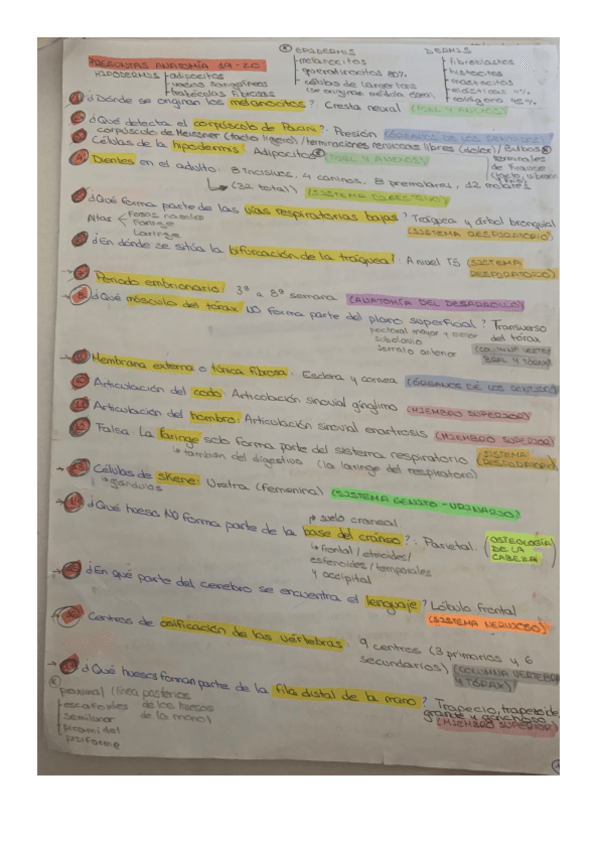 EPIDERMIS
DERMIS
PREGUNTAS ANATOMÍA 19-20
melanocitos
fibroblastos
HIPODERMIS
adipocitos
queratinocitos 80%
histiocitos
vasos sanguíneos
células de Langerhans
mastocitos
trabéculas fibrosas
(se origina médula ósea)
elásticas 4%
colágeno 75%
¿Dónde se originan los melanocitos? Cresta neural (PIEL Y ANEJOS)
¿Qué detecta el corpúsculo de Pacini? Presión (ÓRGANOS DE LOS SENTIDOS)
corpúsculo de Meissner (tacto ligero)/terminaciones nerviosas libres (dolor)/Bulbos
Células de la hipodermis: Adipocitos (PIEL Y ANEJOS)
terminales
de Krause
(tacto,
Dientes en el adulto: 8 incisivos, 4 caninos, 8 premolares, 12 molares
(32 total) (SISTEMA DIGESTIVO)
¿Qué forma parte de las vías respiratorias bajas? Tráquea y árbol bronquial
(SISTEMA RESPIRATORIO)
Altas
Fosas nasales
Faringe
Laringe
¿En dónde se sitúa la bifurcación de la tráquea? A nivel T5 (SISTEMA
RESPIRATORIO)
Periodo embrionario: 3ª a 8ª semana (ANATOMÍA DEL DESARROLLO)
¿Qué músculo del tórax NO forma parte del plano superficial? Transverso
del tórax
pectoral mayor y menor
subclavio
serrato anterior
(COLUMNA VERTE
BRAL Y TÓRAX)
Membrana externa o túnica fibrosa: Esclera y cornea (ÓRGANOS DE LOS SENTIDOS)
Articulación del codo: Articulación sinovial gínglimo (MIEMBRO SUPERIOR)
Articulación del hombro: Articulación sinovial enartrosis (MIEMBRO SUPERIOR)
Falsa: La faringe solo forma parte del sistema respiratorio (SISTEMA
RESPIRATORIO)
también del digestivo (la laringe del respiratorio)
Células de Skene: Uretra (femenina) (SISTEMA GENITO-URINARIO)
glándulas
suelo craneal
¿Qué hueso NO forma parte de la base del cráneo?: Parietal. (OSTEOLOGÍA
DE LA
CABEZA)
frontal/etmoides/
esfenoides/temporales
y occipital
¿En qué parte del cerebro se encuentra el lenguaje? Lóbulo frontal
(SISTEMA NERVIOSO)
Centros de osificación de las vértebras: 9 centros (3 primarios y 6
secundarios) (COLUMNA VERTEBRAL
Y TÓRAX)
¿Qué huesos forman parte de la fila distal de la mano? Trapecio, trapezoide,
grande y ganchoso
(MIEMBRO SUPERIOR)
proximal (línea posterior
de los huesos
de la mano)
escafoides
semilunar
piramidal
pisiforme